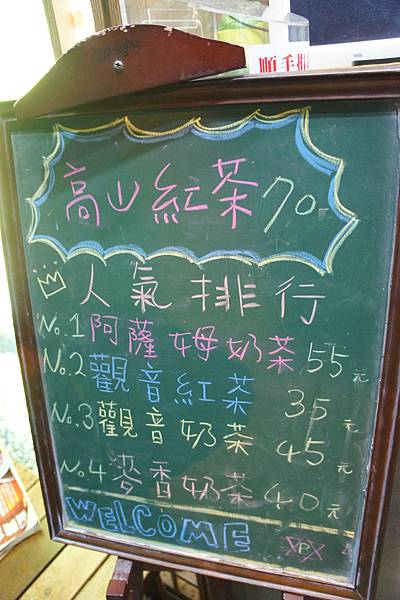 順手
高山紅茶70
人氣排行
No.1阿薩姆奶茶55元
No.2觀音紅茶35元
No.3觀音奶茶45元
No.4麥香奶茶40元
WELCOME